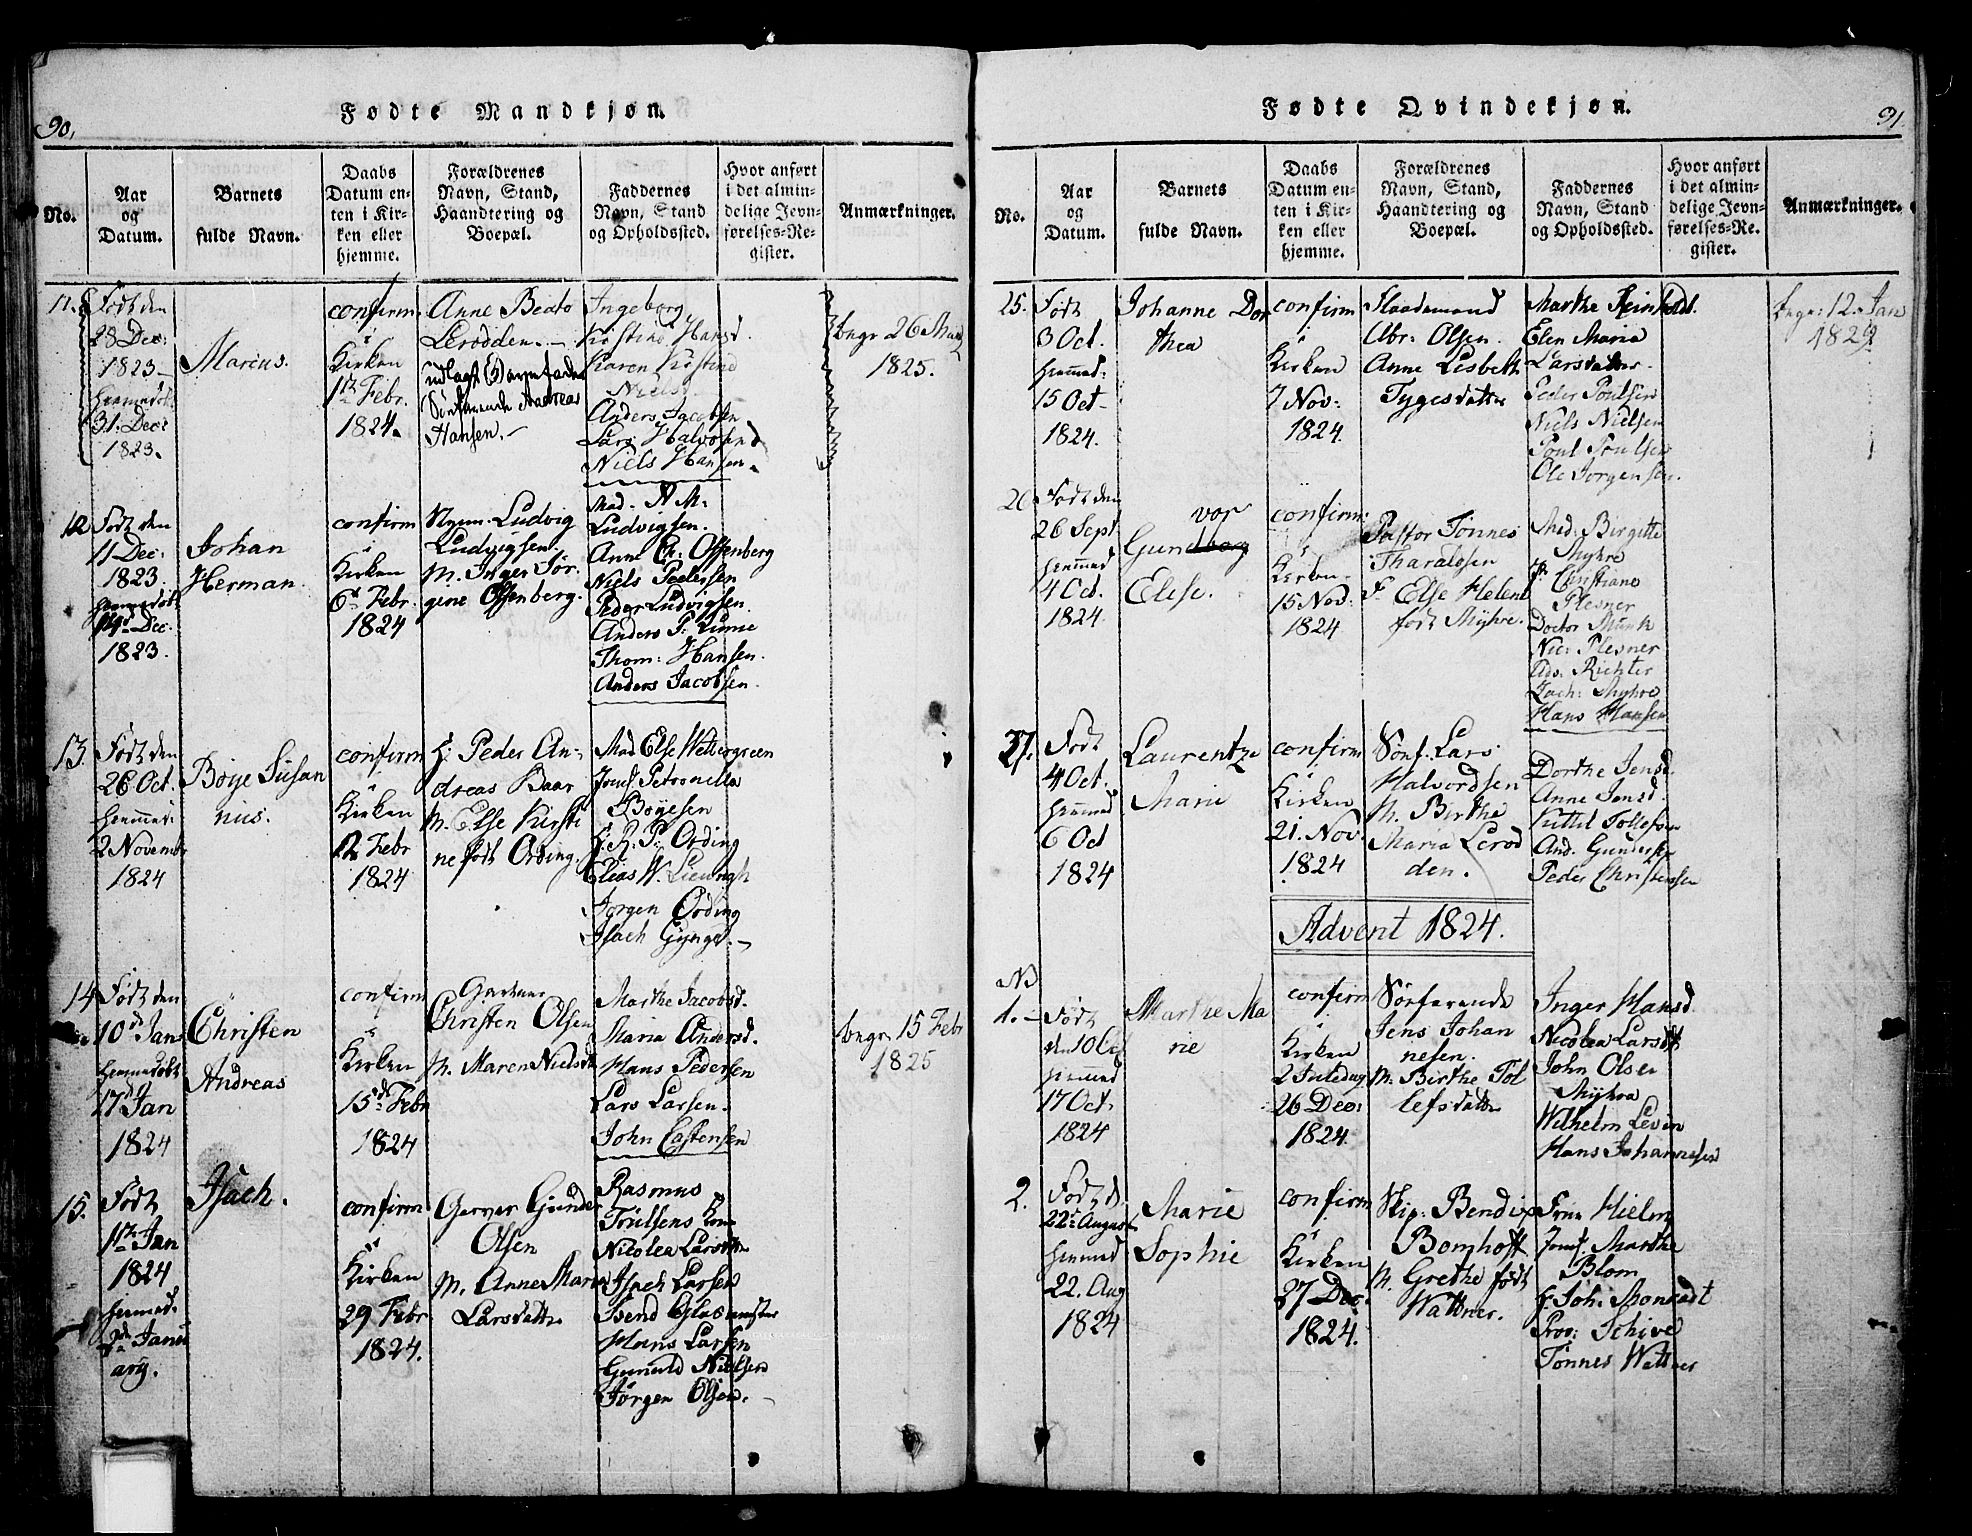 90.
Fødte Mandkjøn.
No.
Aar
og
Datum.
Barnets
fulde Navn.
Daabs
Datum en-
ten i Kir-
ken eller
hjemme.
Forældrenes
Navn, Stand,
Haandtering og
Boepæl.
Faddernes
Navn, Stand
og Opholdssted.
Hvor anført
i det almin-
delige Jevn-
førelses-Re-
gister.
Anmærkninger.
11.
Født den
28 Dec:
1823
hiemmedøbt
31. Dec:
1823.
Marius.
confirm
i
Kirken
1ste Febr.
1824.
Anne Beate
Lerodden.
udlagt Barnefader
Søefarende Andreas
Hansen.
Ingeborg
Kistine Hansd.
Karen Kistine
Niels
Anders Jacobsen
Lars Halvorsen
Niels Hansen.
begr 26 Mai
1825.
12
Født den
11 Dec:
1823.
hiemmedøbt
14d Dec:
1823.
Johan
Herman.
confirm
i
Kirken
6t Febr.
1824
Styrm. Ludvig
Ludvigsen.
M. Inger Jør-
gine Offenberg.
Mad. A M:
Ludvigsen.
Anne Er: Offenberg
Niels Pedersen
Peder Ludvigsen.
Anders P: Lunne
Thom: Hansen.
Anders Jacobsen.
13.
Født den
26 Oct.
hiemmed:
2 Novembr
1824
Bøye Susan
nius.
confirm
i
Kirken
12 Febr
1824
H: Peder An-
dreas Baar
M. Else Kirsti
ne født Ording.
Mad Else Wettergreen
Jomf Petronella
Bøyesen
H. R. P: Ording
Elias W. Lieungh
Jørgen Ording
Isach Gynge.
14
Født den
10d Jan
hiemmedøbt
17d Jan
1824
Christen
Andreas
confirm
i
Kirken
15d Febr
1824
Gartner
Christen Olsen
M. Maren Nielsdt
Marthe Jacobsd.
Maria Andersd.
Hans Pedersen
Lars Larsen.
John Castensen
begr. 15 Febr
1825
15.
Født
1ste Jan
1824
hiemmed.
2den Janu
ary.
Isach.
confirm
i
Kirken
29 Febr
1824.
Garver Gunder
Olsen
M. Anne Maria
Larsdatter
Rasmus
Troelsens Kone
Nicolea Larsdtr
Isach Larsen
Bend Glasmester
Hans Larsen
Gunuld Nielsen
Jørgen Olsen.
91
Fødte Qvindekjøn.
No.
Aar
og
Datum.
Barnets
fulde Navn.
Daabs
Datum en-
ten i Kir-
ken eller
hjemme.
Forældrenes
Navn, Stand,
Haandtering og
Boepæl.
Faddernes
Navn, Stand
og Opholdssted.
Hvor anført
i det almin-
delige Jevn-
førelses-Re-
gister.
Anmærkninger.
25.
Født
3 Oct.
hiemmed:
15 Oct
1824.
Johanne Dor
thea
confirm
i
Kirken
7 Nov:
1824.
Slaademand
Abr: Olsen.
Anne Lisbeth
Tygesdatter
Marthe Reinholdt.
Elen Maria
Larsdatter
Peder Poulsen
Niels Nielsen
Poul Poulsen
Ole Jørgensen.
begr: 12. Jan
1829.
26
Født den
26 Sept
hiemmed
4 Oct.
1824.
vor
Gundborg
Elise.
confirm:
i
Kirken
15 Nov:
1824
Pastor Tønnes
Tharaldsen
F. Else Helene
født Myhre.
Mad: Birgitte
Myhre
Jfr. Christiane
Plesner
Doctor Munk
Nic: Plesner
Ads. Richter
Zach: Myhre
Hans Hansen
27.
Født
4 Oct.
hiemmed
6 Oct
1824
Laurentze
Marie
confirm
i
Kirken
21. Nov.
1824
Sønf. Lars
Halvordsen
M. Birthe
Maria Lerod
den.
Dorthe Jensd.
Anne Jensd.
Kittil Tollefsen
And. Gundersen
Peder Christensen
Advent 1824.
NB
1.
Født
den 10 Oct
hiemmed
17 Oct.
1824
Marthe Ma
rie
confirm
i
Kirken
2 Juledag
26 Dec:
1824.
Sørfarende
Jens Johan
nesen.
M. Birthe Tol
lefsdatter
Inger Hansd.
Nicolea Larsdt
John Olsen
Myhra
Wilhelm Levin
Hans Johannesen
2.
Født d.
22t August
hiemmed
22. Aug
1824
Marie
Sophie
confirm
i
Kirken
27 Dec.
1824.
Skip: Bendix
Bomhoff
M. Grethe født
Wattner.
Frue Hielm
Jomf. Marthe
Blom
H. Joh: Monradt
Prov: Schive
Tønnes Wattner